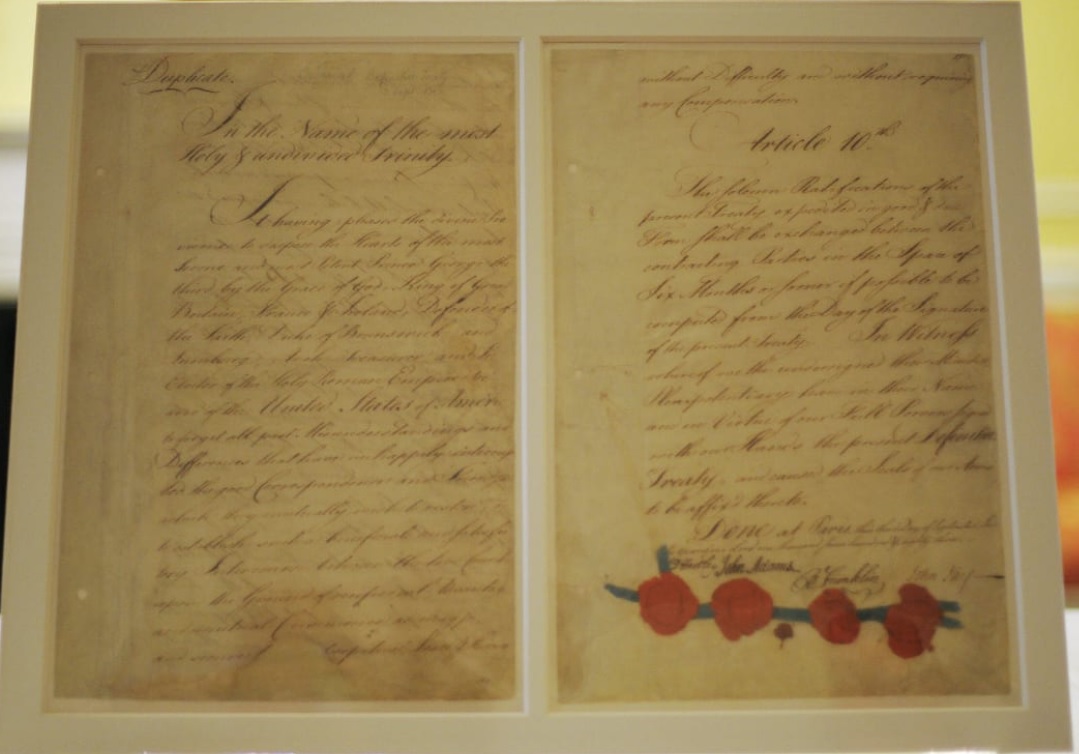 Duplicate.
In the Name of the most
Holy & undivided Trinity.
It having pleased the divine Pro
vidence to dispose the Hearts of the most
Serene and most Potent Prince George the
third, by the Grace of God, King of Great
Britain, France & Ireland, Defender of
the Faith, Duke of Brunswick and
Lunebourg, Arch Treasurer and
Elector of the Holy Roman Empire
and of the United States of Amer
to forget all past Misunderstandings and
Differences that have unhappily interrup
ted the good Correspondence and Friendship
which they mutually wish to restore
to establish such a beneficial and satisfac
tory Intercourse between the two
upon the Ground of reciprocal
and mutual Convenience as may
and secure
without Difficulty and without requiring
any Compensation
Article 10.th
The solemn Ratifications of the
present Treaty expedited in good & due
Form shall be exchanged between the
contracting Parties in the Space of
Six Months or sooner if possible to be
computed from the Day of the Signature
of the present Treaty. In Witness
whereof we the undersigned their Ministers
Plenipotentiary have in their Name
and in Virtue of our Full Powers signed
with our Hands the present Definitive
Treaty, and caused the Seals of our Arms
to be affix'd thereto.
Done at Paris
D Hartley John Adams
B Franklin John Jay